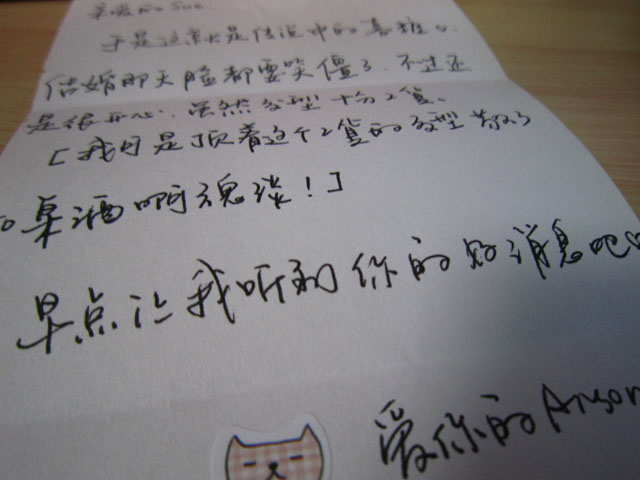 亲爱的 Sue.
于是这就是传说中的喜糖。
结婚那天脸都要笑僵了,不过还
是很开心,虽然发型十分2貨。
[我可是顶着这个2貨的发型敬了
0桌酒啊魂淡!]
早点让我听到你的好消息吧
爱你的